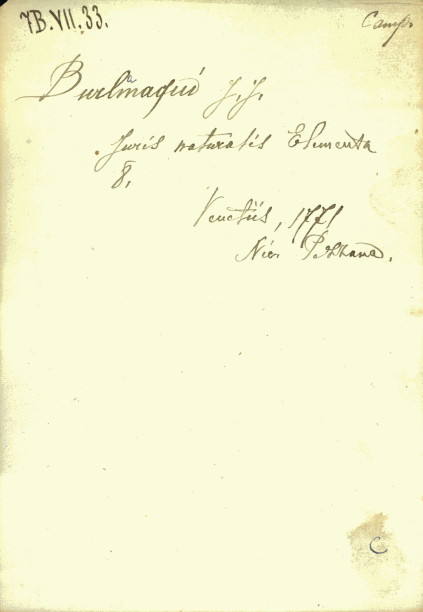 7B.VII.33.
Camp.
Burlmaqui J.J.
Juris naturalis Elementa
8.
Venetiis, 1771
Nic. Pezzana.
C